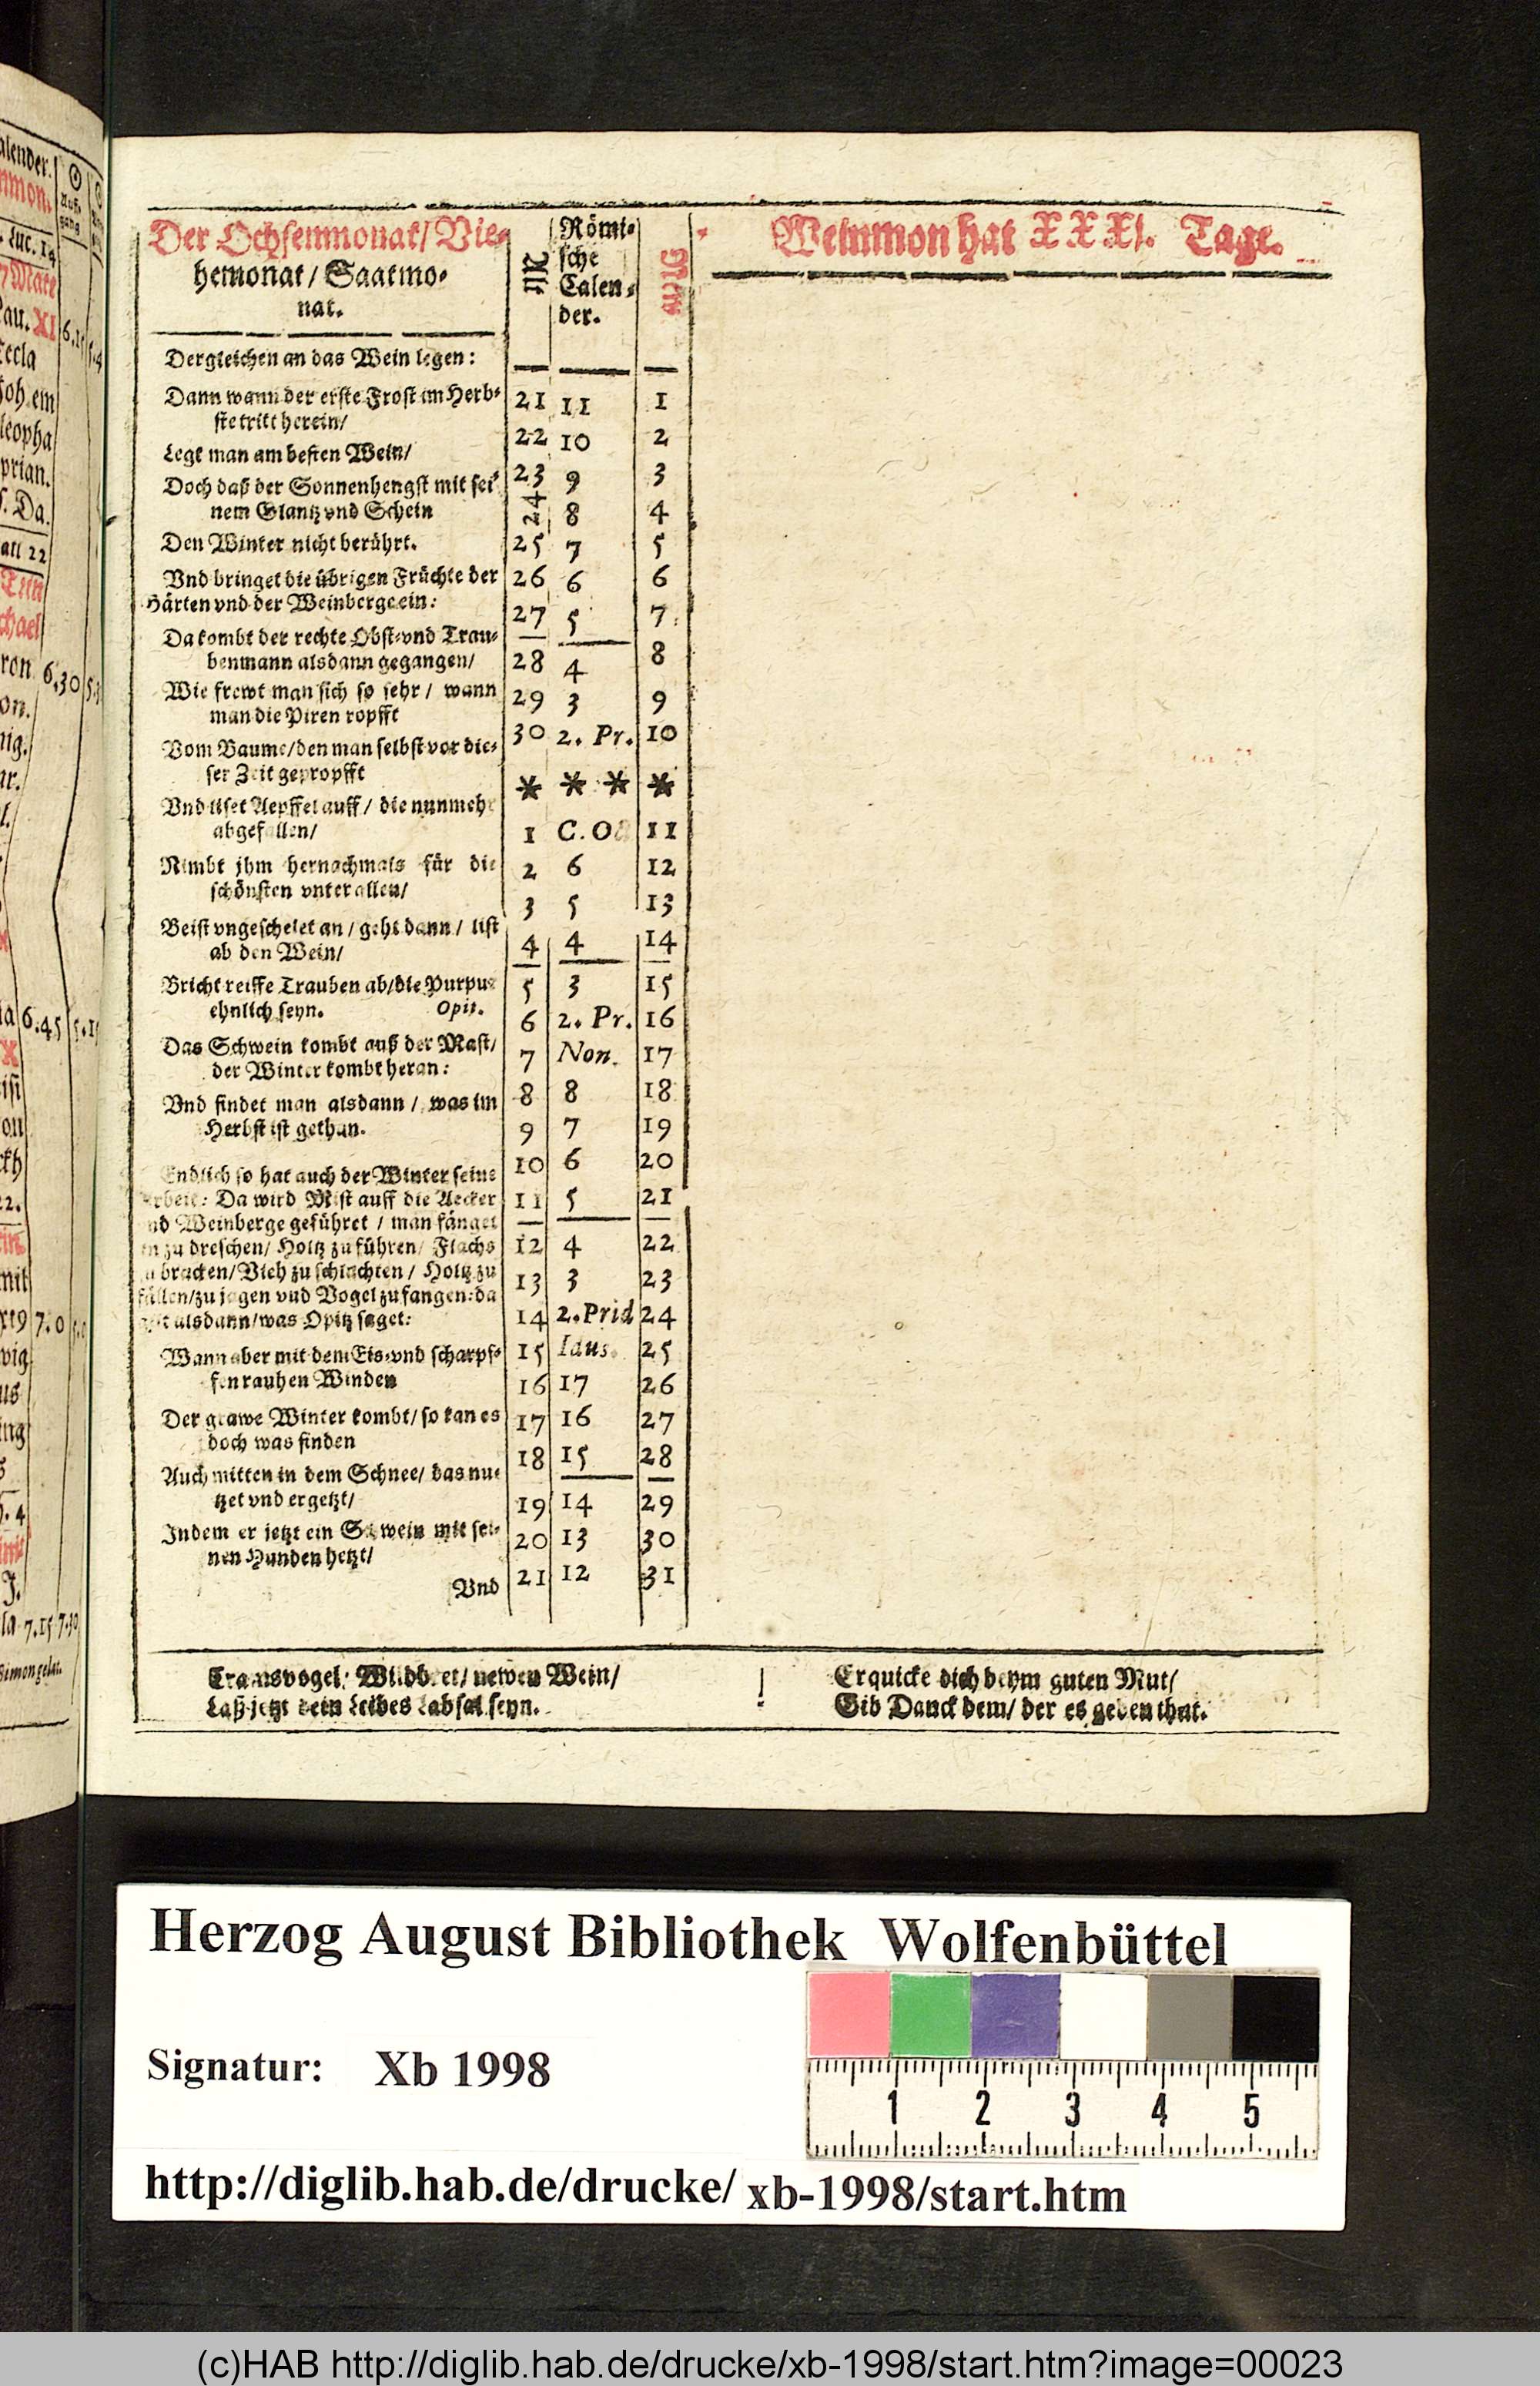 Der Ochsenmonat/ Vie-
hemonat / Saatmo-
nat.
Dergleichen an das Wein legen:
Dann wann der erste Frost im Herb-
ste tritt herein/
Legt man am besten Wein/
Doch daß der Sonnenhengst mit sei-
nem Glantz vnd Schein
Den Winter nicht berührt.
Vnd bringet die übrigen Früchte der
Härten vnd der Weinberge ein:
Da kombt der rechte Obst-vnd Trau-
benmann alsdann gegangen/
Wie frewt man sich so sehr / wann
man die Piren ropfft
Vom Baume/den man selbst vor die-
ser Zeit gepropfft
Vnd liset Aepffel auff / die nunmehr
abgefallen/
Nimbt jhm hernachmals für die
schönsten vnter allen/
Beist vngeschelet an / geht dann / list
ab den Wein/
Bricht reiffe Trauben ab/die Purpur
ehnlich seyn. Opit.
Das Schwein kombt auß der Mast/
der Winter kombt heran:
Vnd findet man alsdann / was im
Herbst ist gethan.
Endlich so hat auch der Winter seine
Arbeit: Da wird Mist auff die Aecker
vnd Weinberge geführet / man fänget
an zu dreschen/ Holtz zu führen/ Flachs
zu bracken/ Vieh zu schlachten / Holtz zu
fällen/zu jagen vnd Vogel zu fangen: da
alsdann/was Opitz saget:
Wann aber mit dem Eis-vnd scharpf-
fen rauhen Winden
Der grawe Winter kombt/ so kan es
doch was finden
Auch mitten in dem Schnee/ das nu-
tzet vnd ergetzt/
Indem er jetzt ein Schwein mit sei-
nen Hunden hetzt/
Vnd
Römi-
sche
Calen-
der.
21 11 1
22 10 2
23 9 3
24 8 4
25 7 5
26 6 6
27 5 7
28 4 8
29 3 9
30 2. Pr. 10
* * * *
1 C. O 11
2 6 12
3 5 13
4 4 14
5 3 15
6 2. Pr. 16
7 Non. 17
8 8 18
9 7 19
10 6 20
11 5 21
12 4 22
13 3 23
14 2. Prid 24
15 Idus. 25
16 17 26
17 16 27
18 15 28
19 14 29
20 13 30
21 12 31
Weinmon hat XXXI. Tage.
Cramsvogel/ Wildbret/ newen Wein/
Laß jetzt dein Leibes Labsal seyn.
Erquicke dich beym guten Mut/
Gib Danck dem/ der es geben thut.
Herzog August Bibliothek Wolfenbüttel
Signatur: Xb 1998
1 2 3 4 5
http://diglib.hab.de/drucke/ xb-1998/start.htm
(c)HAB http://diglib.hab.de/drucke/xb-1998/start.htm?image=00023